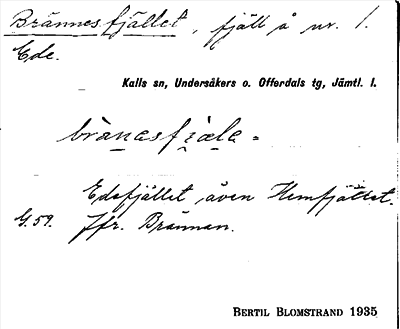 Brännesfjället, fjäll å nr. 1.
Ede.
Kalls sn, Undersåkers o. Offerdals tg, Jämtl. l.
brànəsfiæ̀lə =
Edefjället, även Hemfjället.
G.59. Jfr. Brännan.
BERTIL BLOMSTRAND 1935